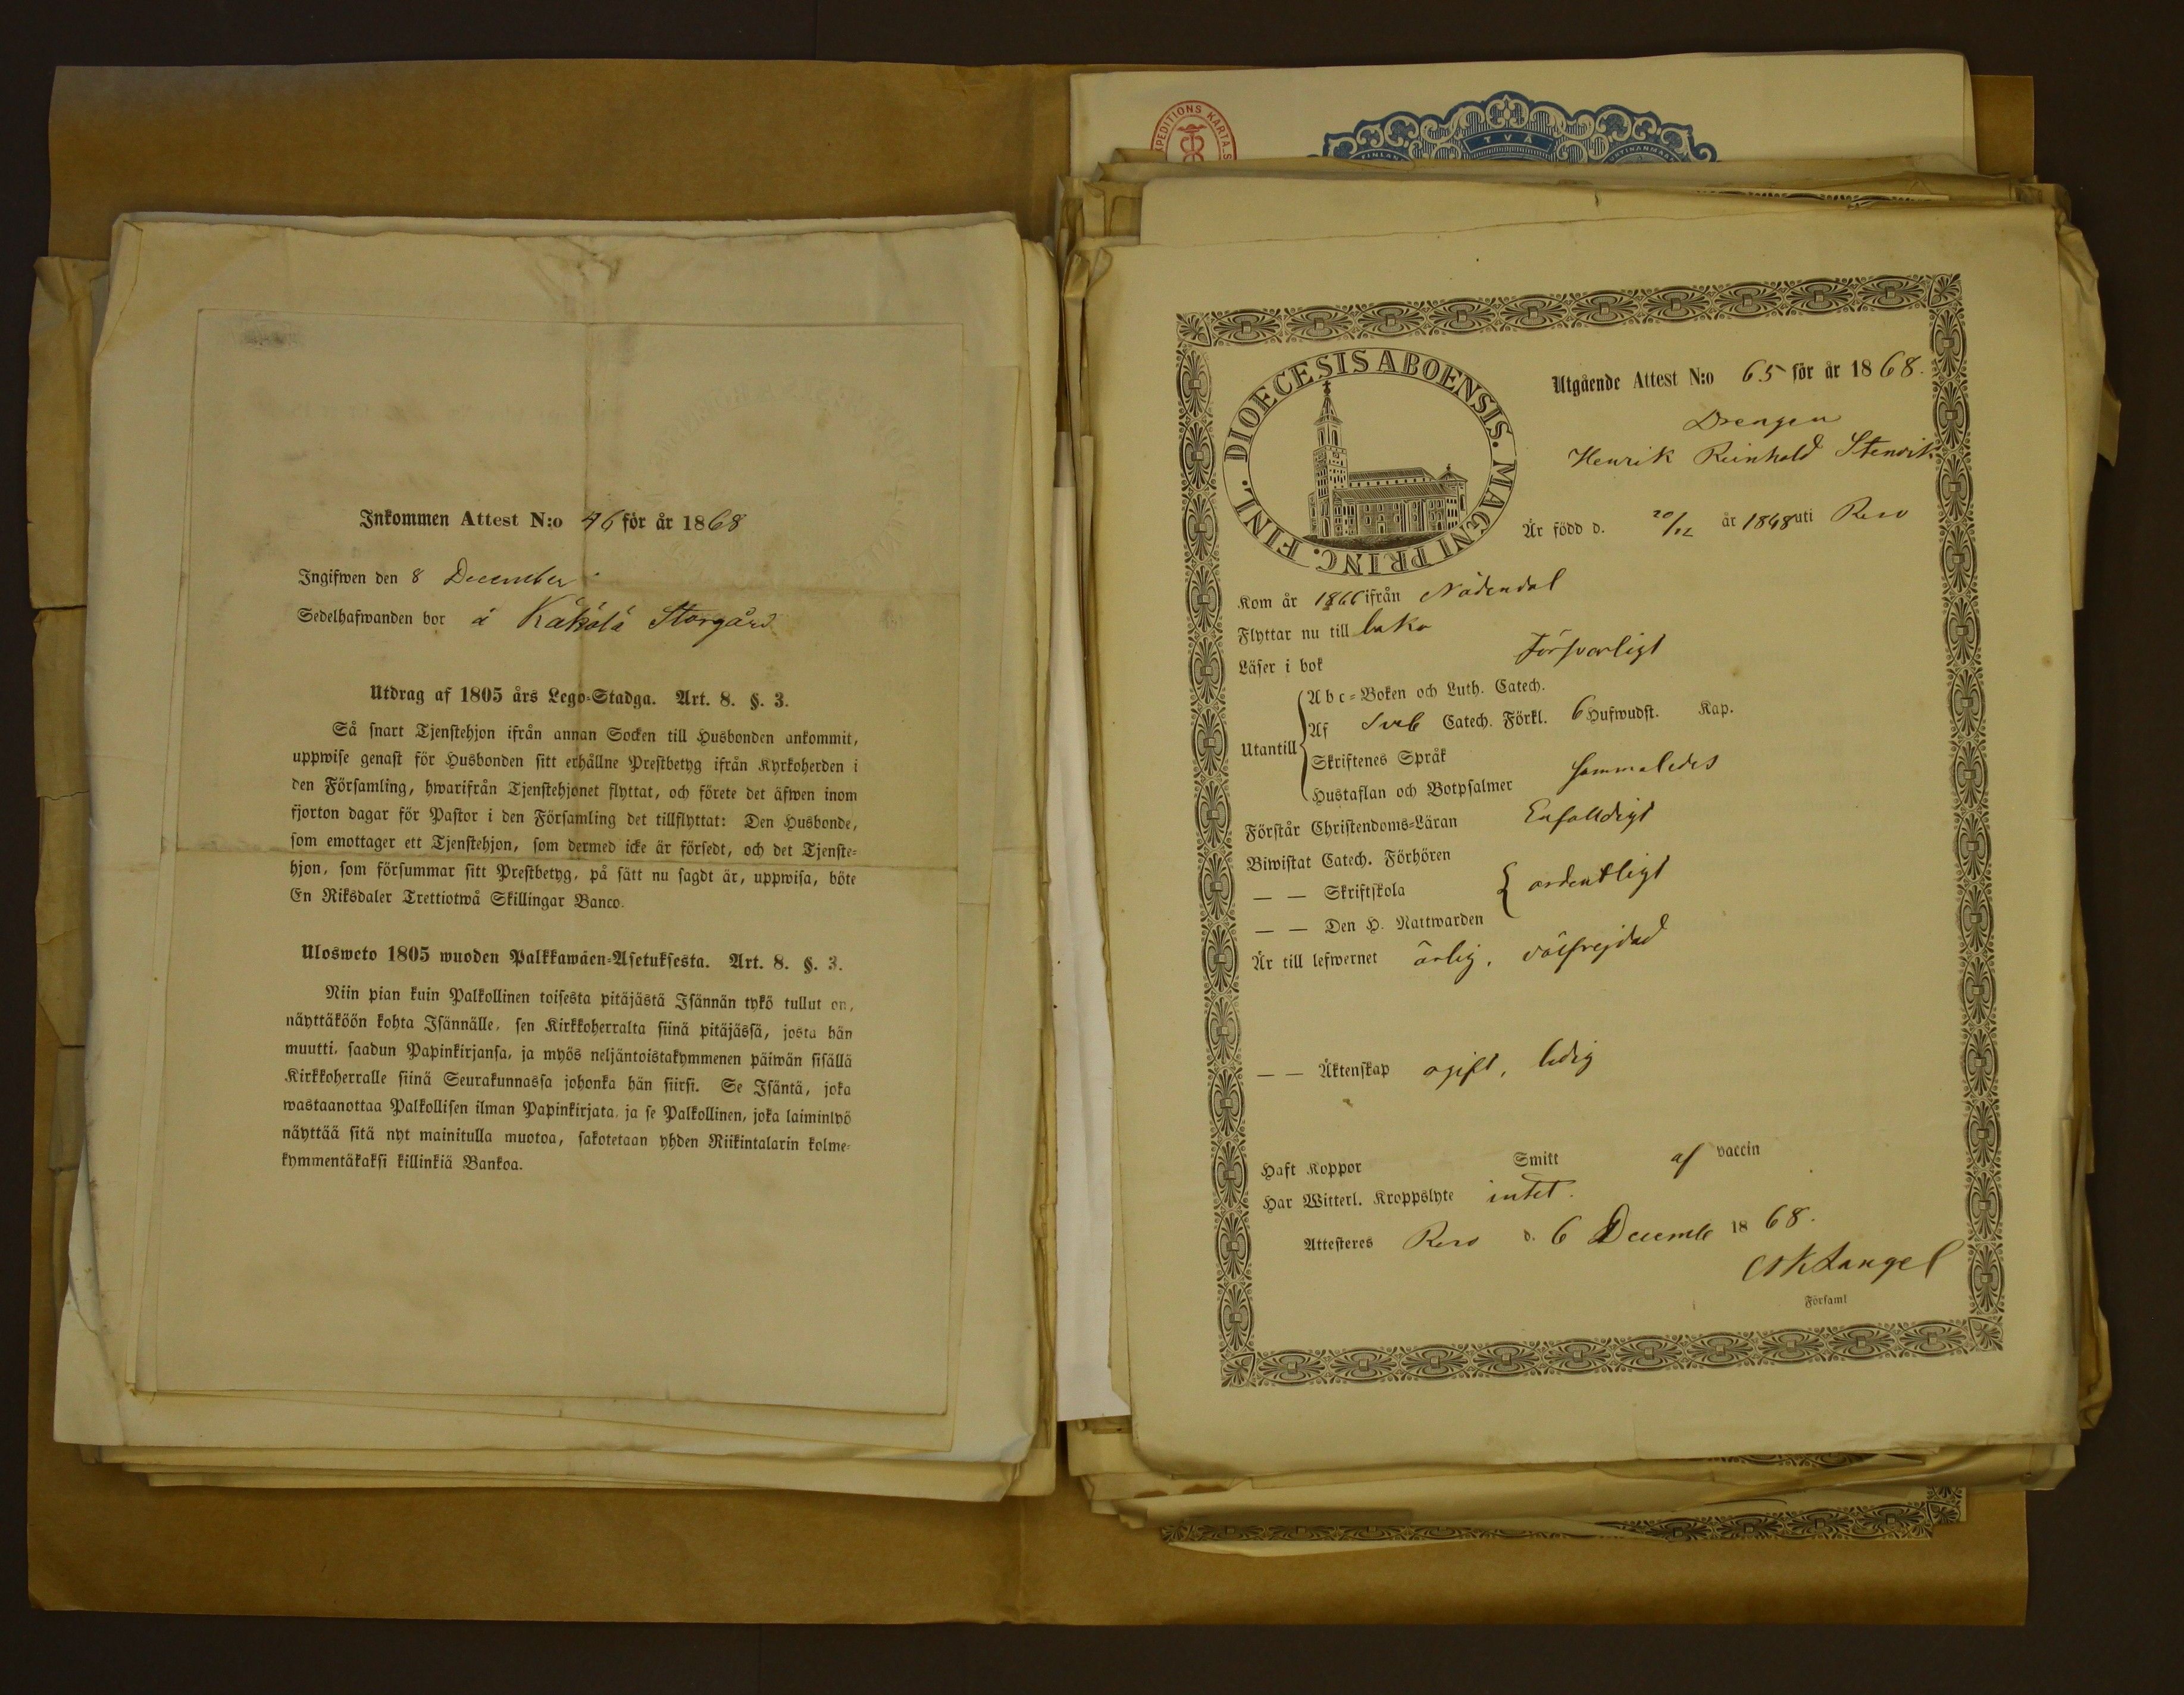 Inkommen Attest N:o 46 för år 1868
Ingifwen den 8 December
Sedelhafwanden bor å Kakola Storgård
Utdrag af 1805 års Lego-Stadga. Art. 8. §. 3.
Så snart Tjenstehjon ifrån annan Socken till Husbonden ankommit,
uppwise genast för Husbonden sitt erhållne Prestbetyg ifrån Kyrkoherden i
den Församling, hwarifrån Tjenstehjonet flyttat, och förete det äfwen inom
fjorton dagar för Pastor i den Församling det tillflyttat: Den Husbonde,
som emottager ett Tjenstehjon, som dermed icke är försedt, och det Tjenste-
hjon, som försummar sitt Prestbetyg, på sätt nu sagdt är, uppwisa, böte
En Riksdaler Trettiotwå Skillingar Banco.
Ulosweto 1805 wuoden Palkkawäen-Asetuksesta. Art. 8. §. 3.
Niin pian kuin Palkollinen toisesta pitäjästä Isännän tykö tullut on,
näyttäköön kohta Isännälle, sen Kirkkoherralta siinä pitäjässä, josta hän
muutti, saadun Papinkirjansa, ja myös neljäntoistakymmenen päiwän sisällä
Kirkkoherralle siinä Seurakunnassa johonka hän siirsi. Se Isäntä, joka
wastaanottaa Palkollisen ilman Papinkirjata, ja se Palkollinen, joka laiminlyö
näyttää sitä nyt mainitulla muotoa, sakotetaan yhden Riikintalarin kolme-
kymmentäkaksi killinkiä Bankoa.
PEDITIONS KARTA.S
TVÅ
DIOECESIS ABOENSIS. MAGNI PRINC. FINL.
Utgående Attest N:o 65 för år 1868.
Drengen
Henrik Reinhold Stenvik
Är född d. 20/12 år 1848 uti Reso
Kom år 1866 ifrån Nådendal
Flyttar nu till
Läser i bok Försvarligt
Utantill
Abc-Boken och Luth. Catech.
Af Sveb Catech. Förkl. 6 Hufwudst. Kap.
Skriftenes Språk
Hustaflan och Botpsalmer sammaledes
Förstår Christendoms-Läran Enfalldigt
Biwistat Catech. Förhören
— — Skriftskola ordentligt
— — Den H. Nattwarden
Är till lefwernet ärlig, välfrejdad
— — Äktenskap ogift, ledig
Haft Koppor Smitt af vaccin
Har Witterl. Kroppslyte intet.
Attesteres Reso d. 6 Decemb 1868.
Langel
Församl